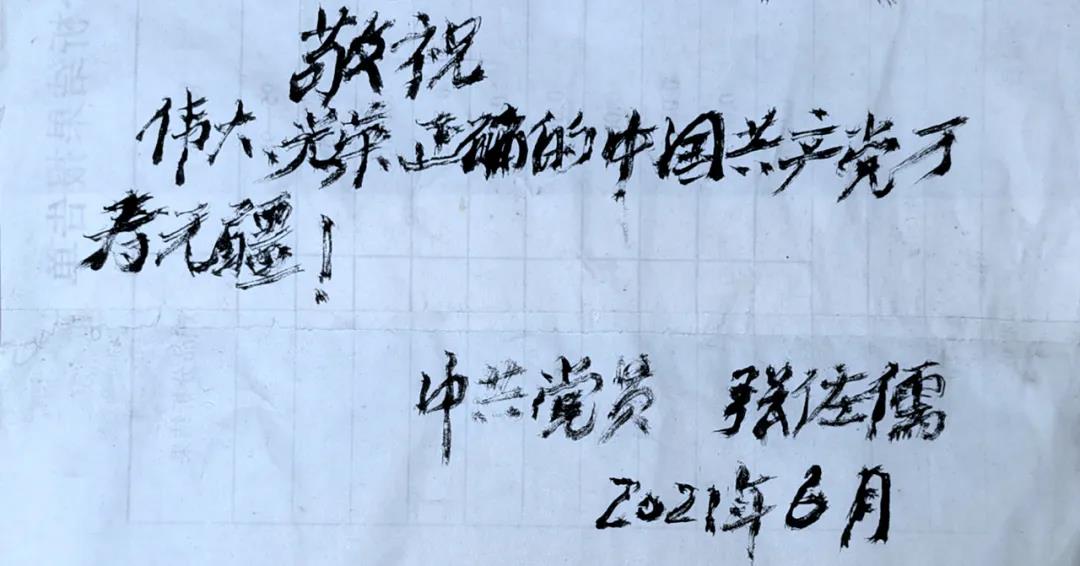 敬祝
伟大、光荣正确的中国共产党万
寿无疆!
中共党员 张佐儒
2021年6月